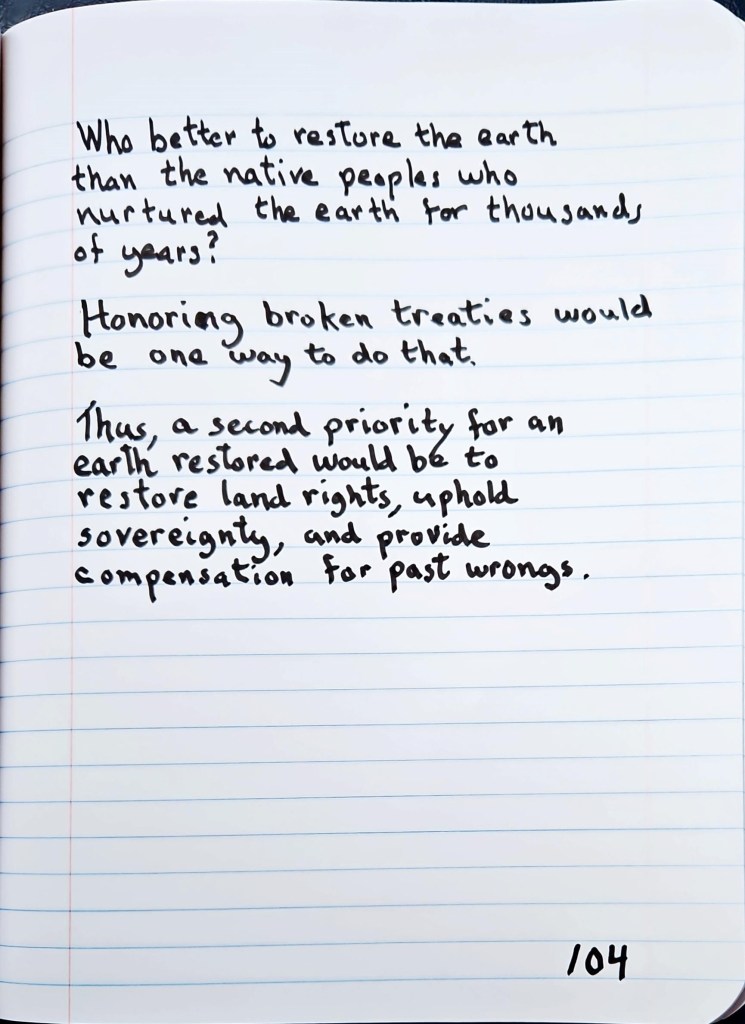 Who better to restore the earth
than the native peoples who
nurtured the earth for thousands
of years?
Honoring broken treaties would
be one way to do that.
Thus, a second priority for an
earth restored would be to
restore land rights, uphold
sovereignty, and provide
compensation for past wrongs.
104